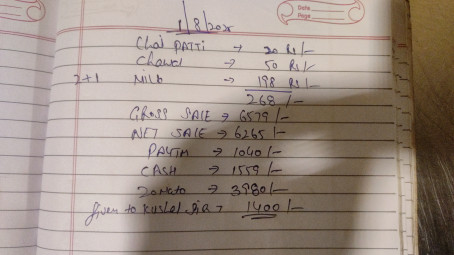 Date
Page
1/8/20
Chai PATTI → 20 Rs/-
Chawal → 50 Rs/-
2+1 Milk → 198 Rs/-
268/-
Gross SALE → 6579/-
NET SALE → 6265/-
PAYTM → 1040/-
CASH → 1559/-
Zomato → 3980/-
given to Kushal Sir → 1400/-